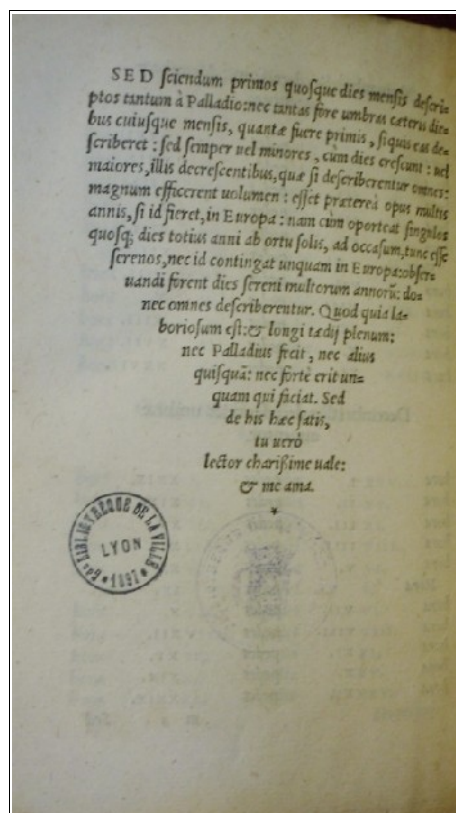 SED ſciendum primos quoſque dies menſis deſcri=
ptos tantum à Palladio: nec tantas fore umbras cæteris die=
bus cuiuſque menſis, quantæ fuere primis, ſiquis eas de=
ſcriberet: ſed ſemper uel minores, cùm dies creſcunt: uel
maiores, illis decreſcentibus, quæ ſi deſcriberentur omnes:
magnum efficerent uolumen: eſſet præterea opus multis
annis, ſi id fieret, in Europa: nam cùm oporteat ſingulos
quoſq; dies totius anni ab ortu ſolis, ad occaſum, tunc eſſe
ſerenos, nec id contingat unquam in Europa: obſer=
uandi forent dies ſereni multorum annorũ: do=
nec omnes deſcriberentur. Quod quia la=
borioſum eſt: & longi tædij plenum:
nec Palladius fecit, nec alius
quiſquã: nec fortè erit un=
quam qui faciat. Sed
de his hæc ſatis,
tu uerò
lector chariſſime uale:
& me ama.
*
BIBLIOTHEQUE DE LA VILLE
LYON
1897